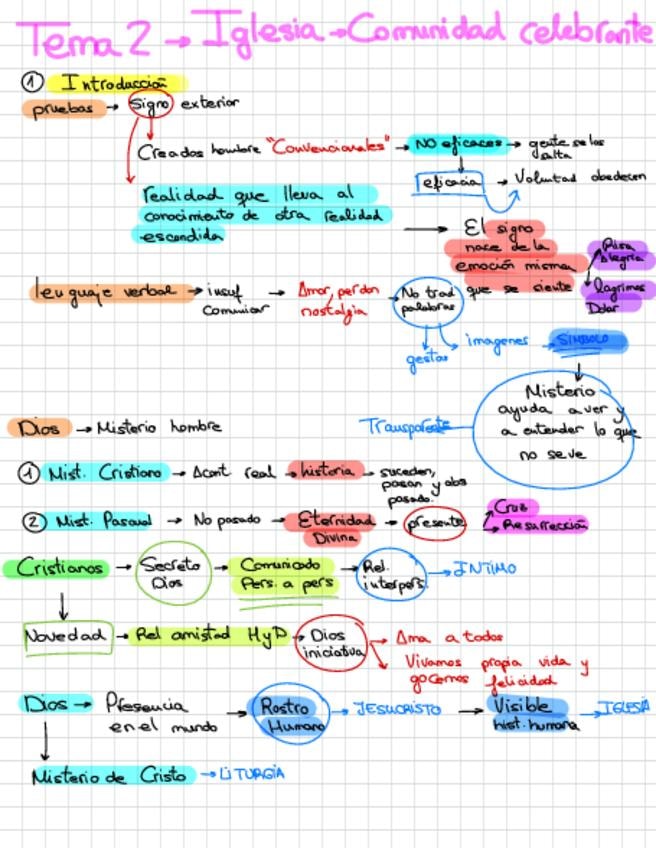 Tema 2 → Iglesia → Comunidad celebrante
① Introducción
pruebas → Signo exterior
Creados hombre "Convencionales" → NO eficaces → gente se las salta
eficacia → Voluntad obedecen
realidad que lleva al
conocimiento de otra realidad
escondida
→ El signo
nace de la
emoción misma
que se siente
Risa
Alegría
lagrimas
Dolor
lenguaje verbal → insuf. comunicar → Amor, perdon nostalgia → No trad palabras
gestos
imagenes → SIMBOLO
Misterio
ayuda a ver y
a entender lo que
no se ve
Transparente
Dios → Misterio hombre
① Mist. Cristiano → Acont. real → historia → suceden,
pasan y
pasado.
② Mist. Pascual → No pasado → Eternidad Divina → presente
Cruz
Resurrección
Cristianos → Secreto Dios → Comunicado Pers. a pers → Rel. interpers. → INTIMO
Novedad → Rel amistad HyD → Dios iniciativa
→ Ama a todos
Vivamos propia vida y
gocemos felicidad
Dios → Presencia en el mundo → Rostro Humano → JESUCRISTO → Visible hist. humana → IGLESIA
Misterio de Cristo → LITURGIA